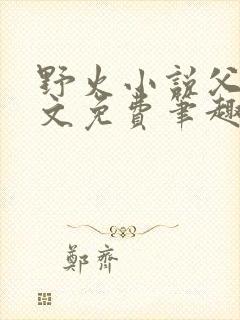 野火小説父
文免費筆趣
鄭齊